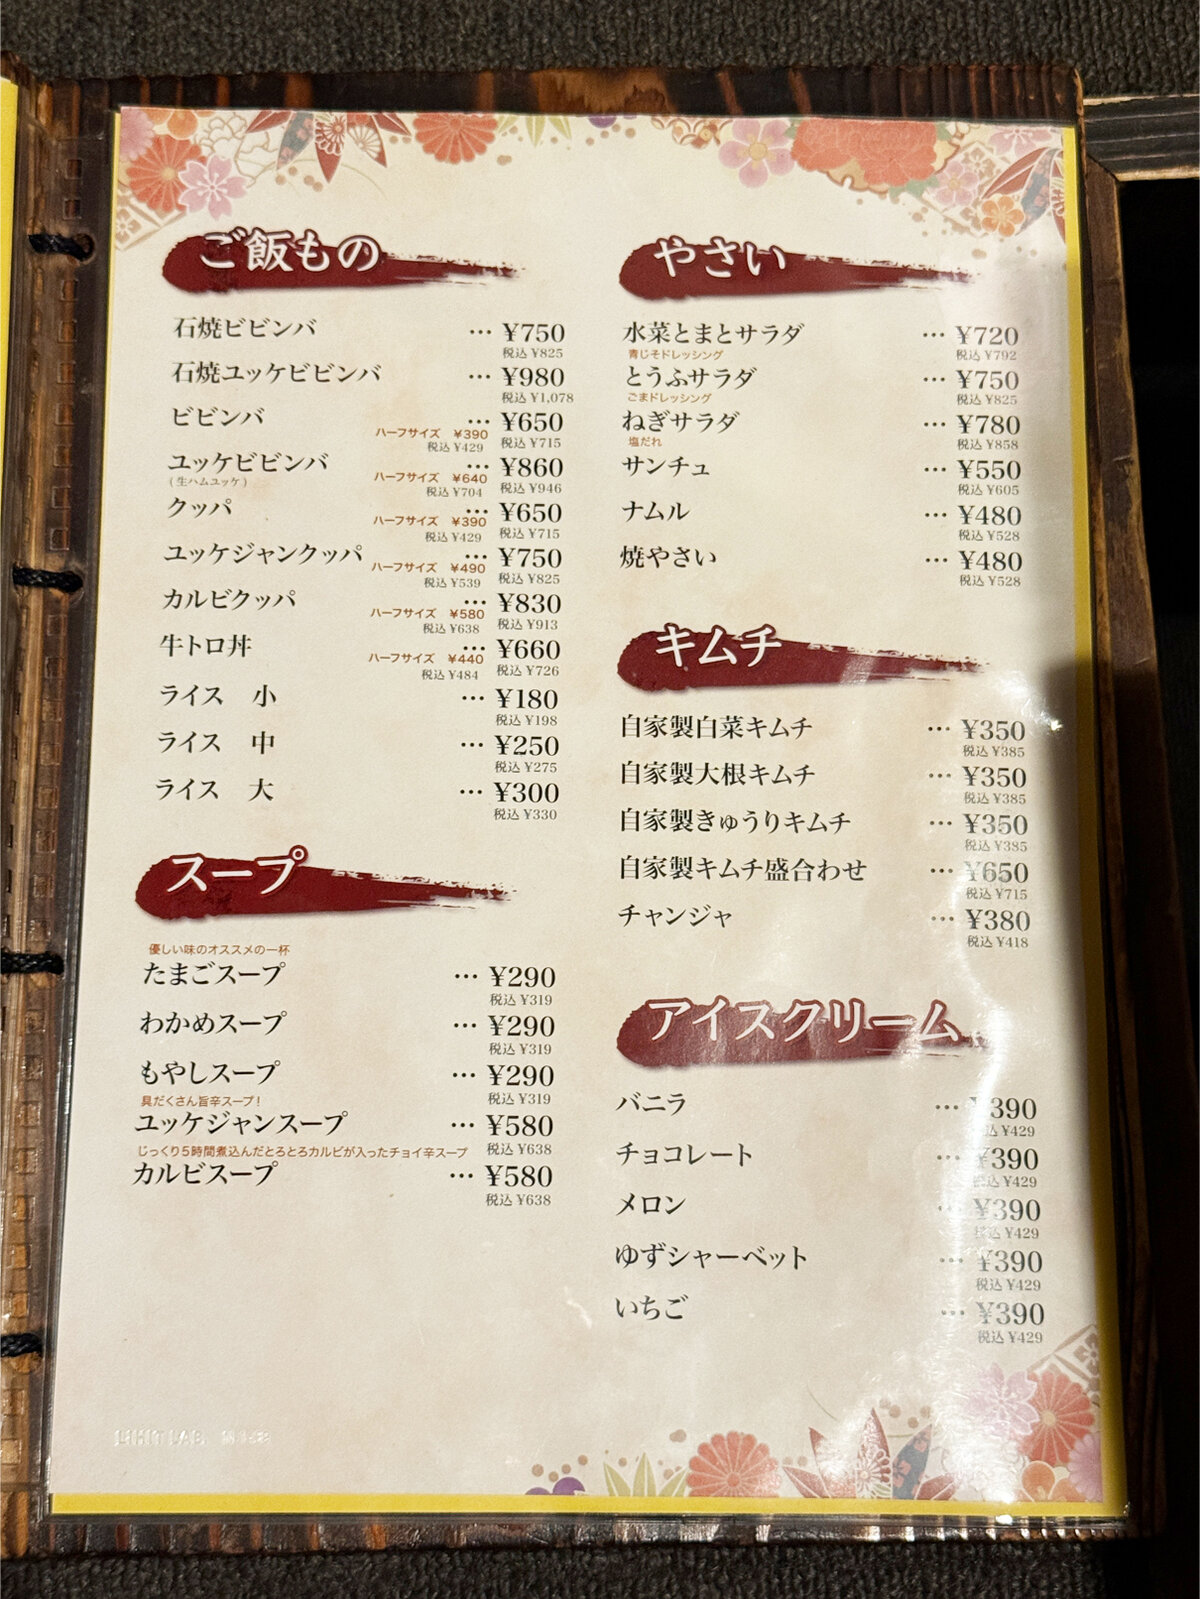 ご飯もの
石焼ビビンバ … ¥750
税込 ¥825
石焼ユッケビビンバ … ¥980
税込 ¥1,078
ビビンバ … ¥650
ハーフサイズ ¥390 税込 ¥715
税込 ¥429
ユッケビビンバ … ¥860
(生ハムユッケ) ハーフサイズ ¥640 税込 ¥946
税込 ¥704
クッパ … ¥650
ハーフサイズ ¥390 税込 ¥715
税込 ¥429
ユッケジャンクッパ … ¥750
ハーフサイズ ¥490 税込 ¥825
税込 ¥539
カルビクッパ … ¥830
ハーフサイズ ¥580 税込 ¥913
税込 ¥638
牛トロ丼 … ¥660
ハーフサイズ ¥440 税込 ¥726
税込 ¥484
ライス 小 … ¥180
税込 ¥198
ライス 中 … ¥250
税込 ¥275
ライス 大 … ¥300
税込 ¥330
スープ
優しい味のオススメの一杯
たまごスープ … ¥290
税込 ¥319
わかめスープ … ¥290
税込 ¥319
もやしスープ … ¥290
税込 ¥319
具だくさん旨辛スープ！
ユッケジャンスープ … ¥580
税込 ¥638
じっくり5時間煮込んだとろとろカルビが入ったチョイ辛スープ
カルビスープ … ¥580
税込 ¥638
やさい
水菜とまとサラダ … ¥720
青じそドレッシング 税込 ¥792
とうふサラダ … ¥750
ごまドレッシング 税込 ¥825
ねぎサラダ … ¥780
塩だれ 税込 ¥858
サンチュ … ¥550
税込 ¥605
ナムル … ¥480
税込 ¥528
焼やさい … ¥480
税込 ¥528
キムチ
自家製白菜キムチ … ¥350
税込 ¥385
自家製大根キムチ … ¥350
税込 ¥385
自家製きゅうりキムチ … ¥350
税込 ¥385
自家製キムチ盛合わせ … ¥650
税込 ¥715
チャンジャ … ¥380
税込 ¥418
アイスクリーム
バニラ … ¥390
税込 ¥429
チョコレート … ¥390
税込 ¥429
メロン … ¥390
税込 ¥429
ゆずシャーベット … ¥390
税込 ¥429
いちご … ¥390
税込 ¥429
LIHIT LAB.